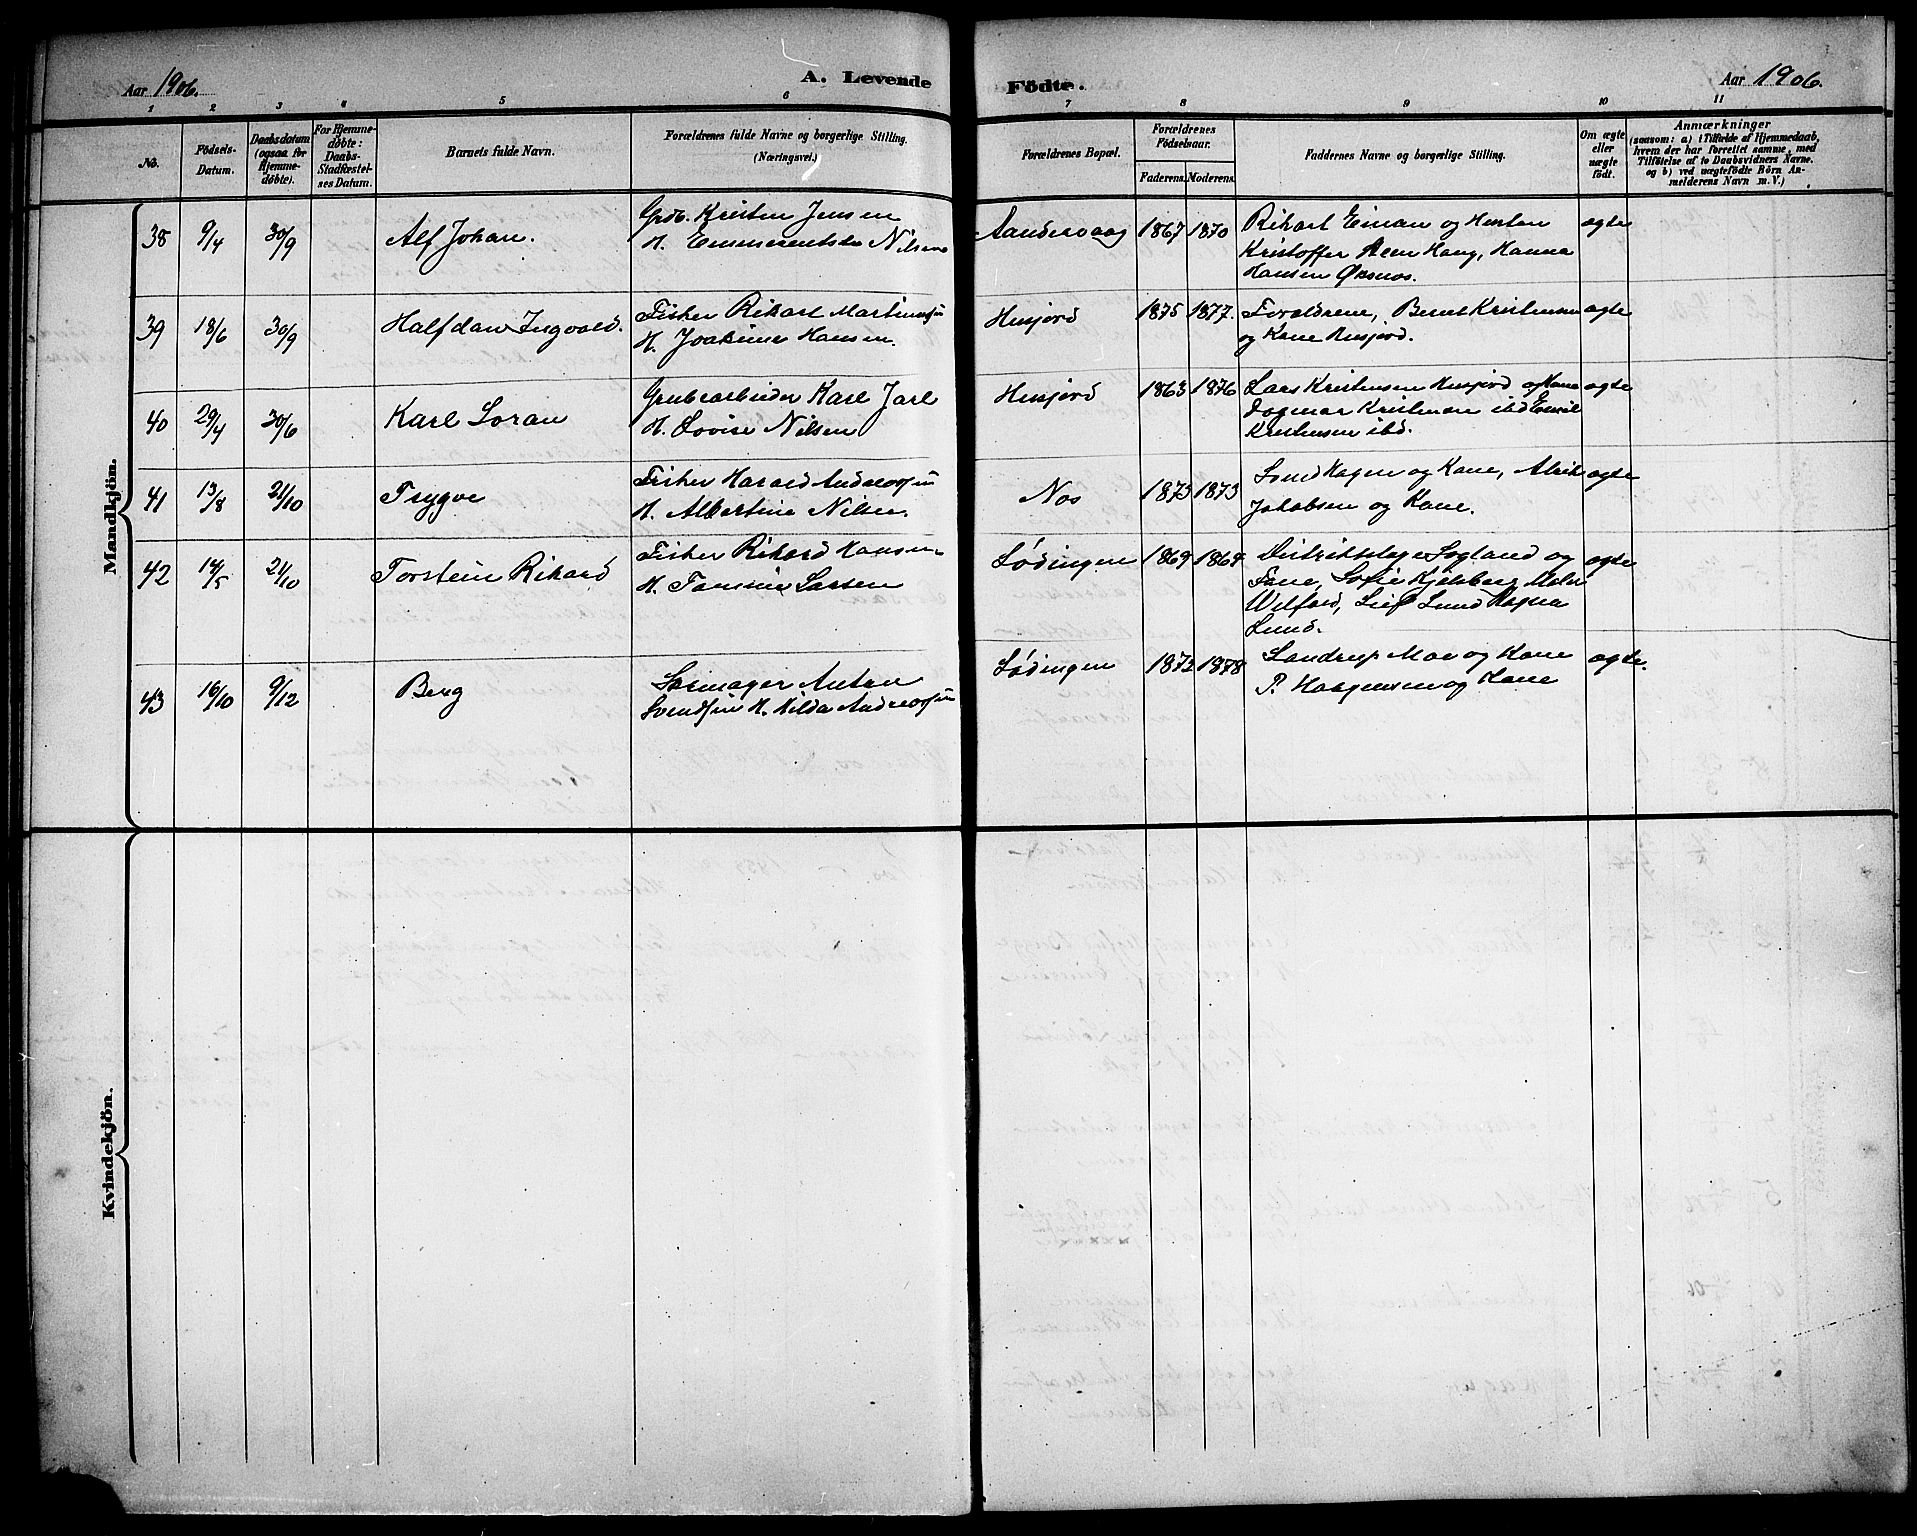 Aar 1906.
A. Levende
Födte.
Aar 1906.
1 2 3 4 5 6 7 8 9 10 11
No.
Födsels-
Datum.
Daabsdatum
(ogsaa for
Hjemme-
döbte).
For Hjemme-
döbte:
Daabs-
Stadfæstel-
ses Datum.
Barnets fulde Navn.
Forældrenes fulde Navne og borgerlige Stilling.
(Næringsvei.)
Forældrenes Bopæl.
Forældrenes
Födselsaar.
Faderens. Moderens.
Faddernes Navne og borgerlige Stilling.
Om ægte
eller
uægte
födt.
Anmærkninger
(saasom: a) i Tilfælde af Hjemmedaab,
hvem der har forrettet samme, med
Tilföielse af to Daabsvidners Navne.
og b) ved uægtefödte Börn An-
melderens Navn m. V.)
Mandkjön.
38 9/4 30/9 Alf Johan.
Grdb. Kristen Jensen
H. Emmerentse Nilsen
Sandervaag 1867 1870
Rikart Einan og Husten
Kristoffer Rem Haug, Hanna
Hansen Øksnes.
ægte
39 18/6 30/9 Halfdan Ingvald.
Fisker Rikart Martinussen
H. Joakime Hansen.
Husjord 1875 1877.
Forældrene, Bernt Kristensen
og Kone Husjord.
ægte
40 29/4 30/6 Karl Soran
Grubearbeider Karl Jarl
H. Lovise Nilsen
Husjord 1863 1876
Lars Kristensen Husjord og Kone
Dagmar Kristensen ibd Emil
Kristensen ibd.
ægte
41 13/8 21/10 Trygve
Fisker Harald Andreassen
H. Albertine Nilsen.
Nes 1873 1873
Svend Hagen og Kone, Alrik
Jakobsen og Kone.
ægte
42 14/5 21/10 Torstein Rikard
Fisker Rikard Hansen
H. Tomine Larsen
Lødingen 1869 1869
Distriktslæge Sogland og
Frue, Sofie Kjelsberg,
Wilfard, Leif Lund Magna
Lund.
ægte
43 16/10 9/12 Berg
Skomager Anton
Svendsen H. Hilda Andreassen
Lødingen 1872 1878
Sandrup Moe og Kone
P. Haagensen og Kone
ægte.
Kvindekjön.